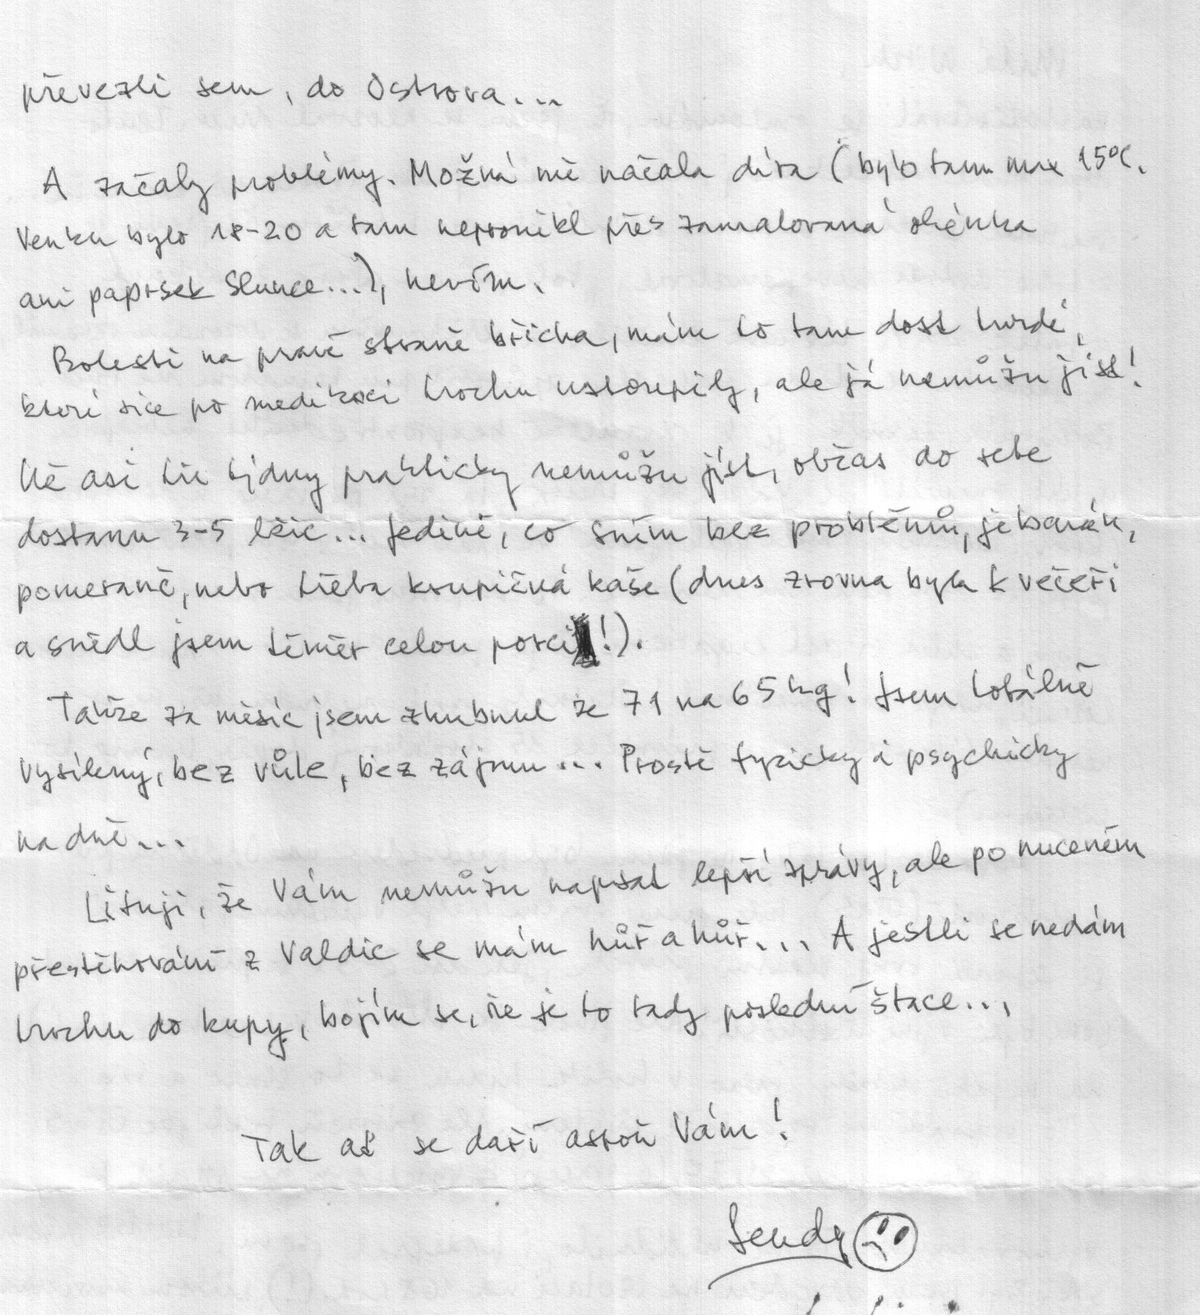 převezli sem, do Ostrova...
A začaly problémy. Možná mě načala díra (bylo tam max 15°C.
Venku bylo 18-20 a tam nepronikl přes zamalovaná okénka
ani paprsek slunce...), nevím.
Bolesti na pravé straně břicha, mám to tam dost tvrdé,
které sice po medikaci trochu ustoupily, ale já nemůžu jíst!
Už asi tři týdny prakticky nemůžu jíst, občas do sebe
dostanu 3-5 lžic... Jediné, co sním bez problémů, je banán,
pomeranč, nebo třeba krupičná kaše (dnes zrovna byla k večeři
a snědl jsem téměř celou porci!).
Takže za měsíc jsem zhubnul ze 71 na 65 kg! Jsem totálně
vysílený, bez vůle, bez zájmu... Prostě fyzicky i psychicky
na dně...
Lituji, že Vám nemůžu napsat lepší zprávy, ale po nuceném
přestěhování z Valdic se mám hůř a hůř... A jestli se nedám
trochu do kupy, bojím se, že je to tady poslední štace...,
Tak ať se daří astoň Vám!